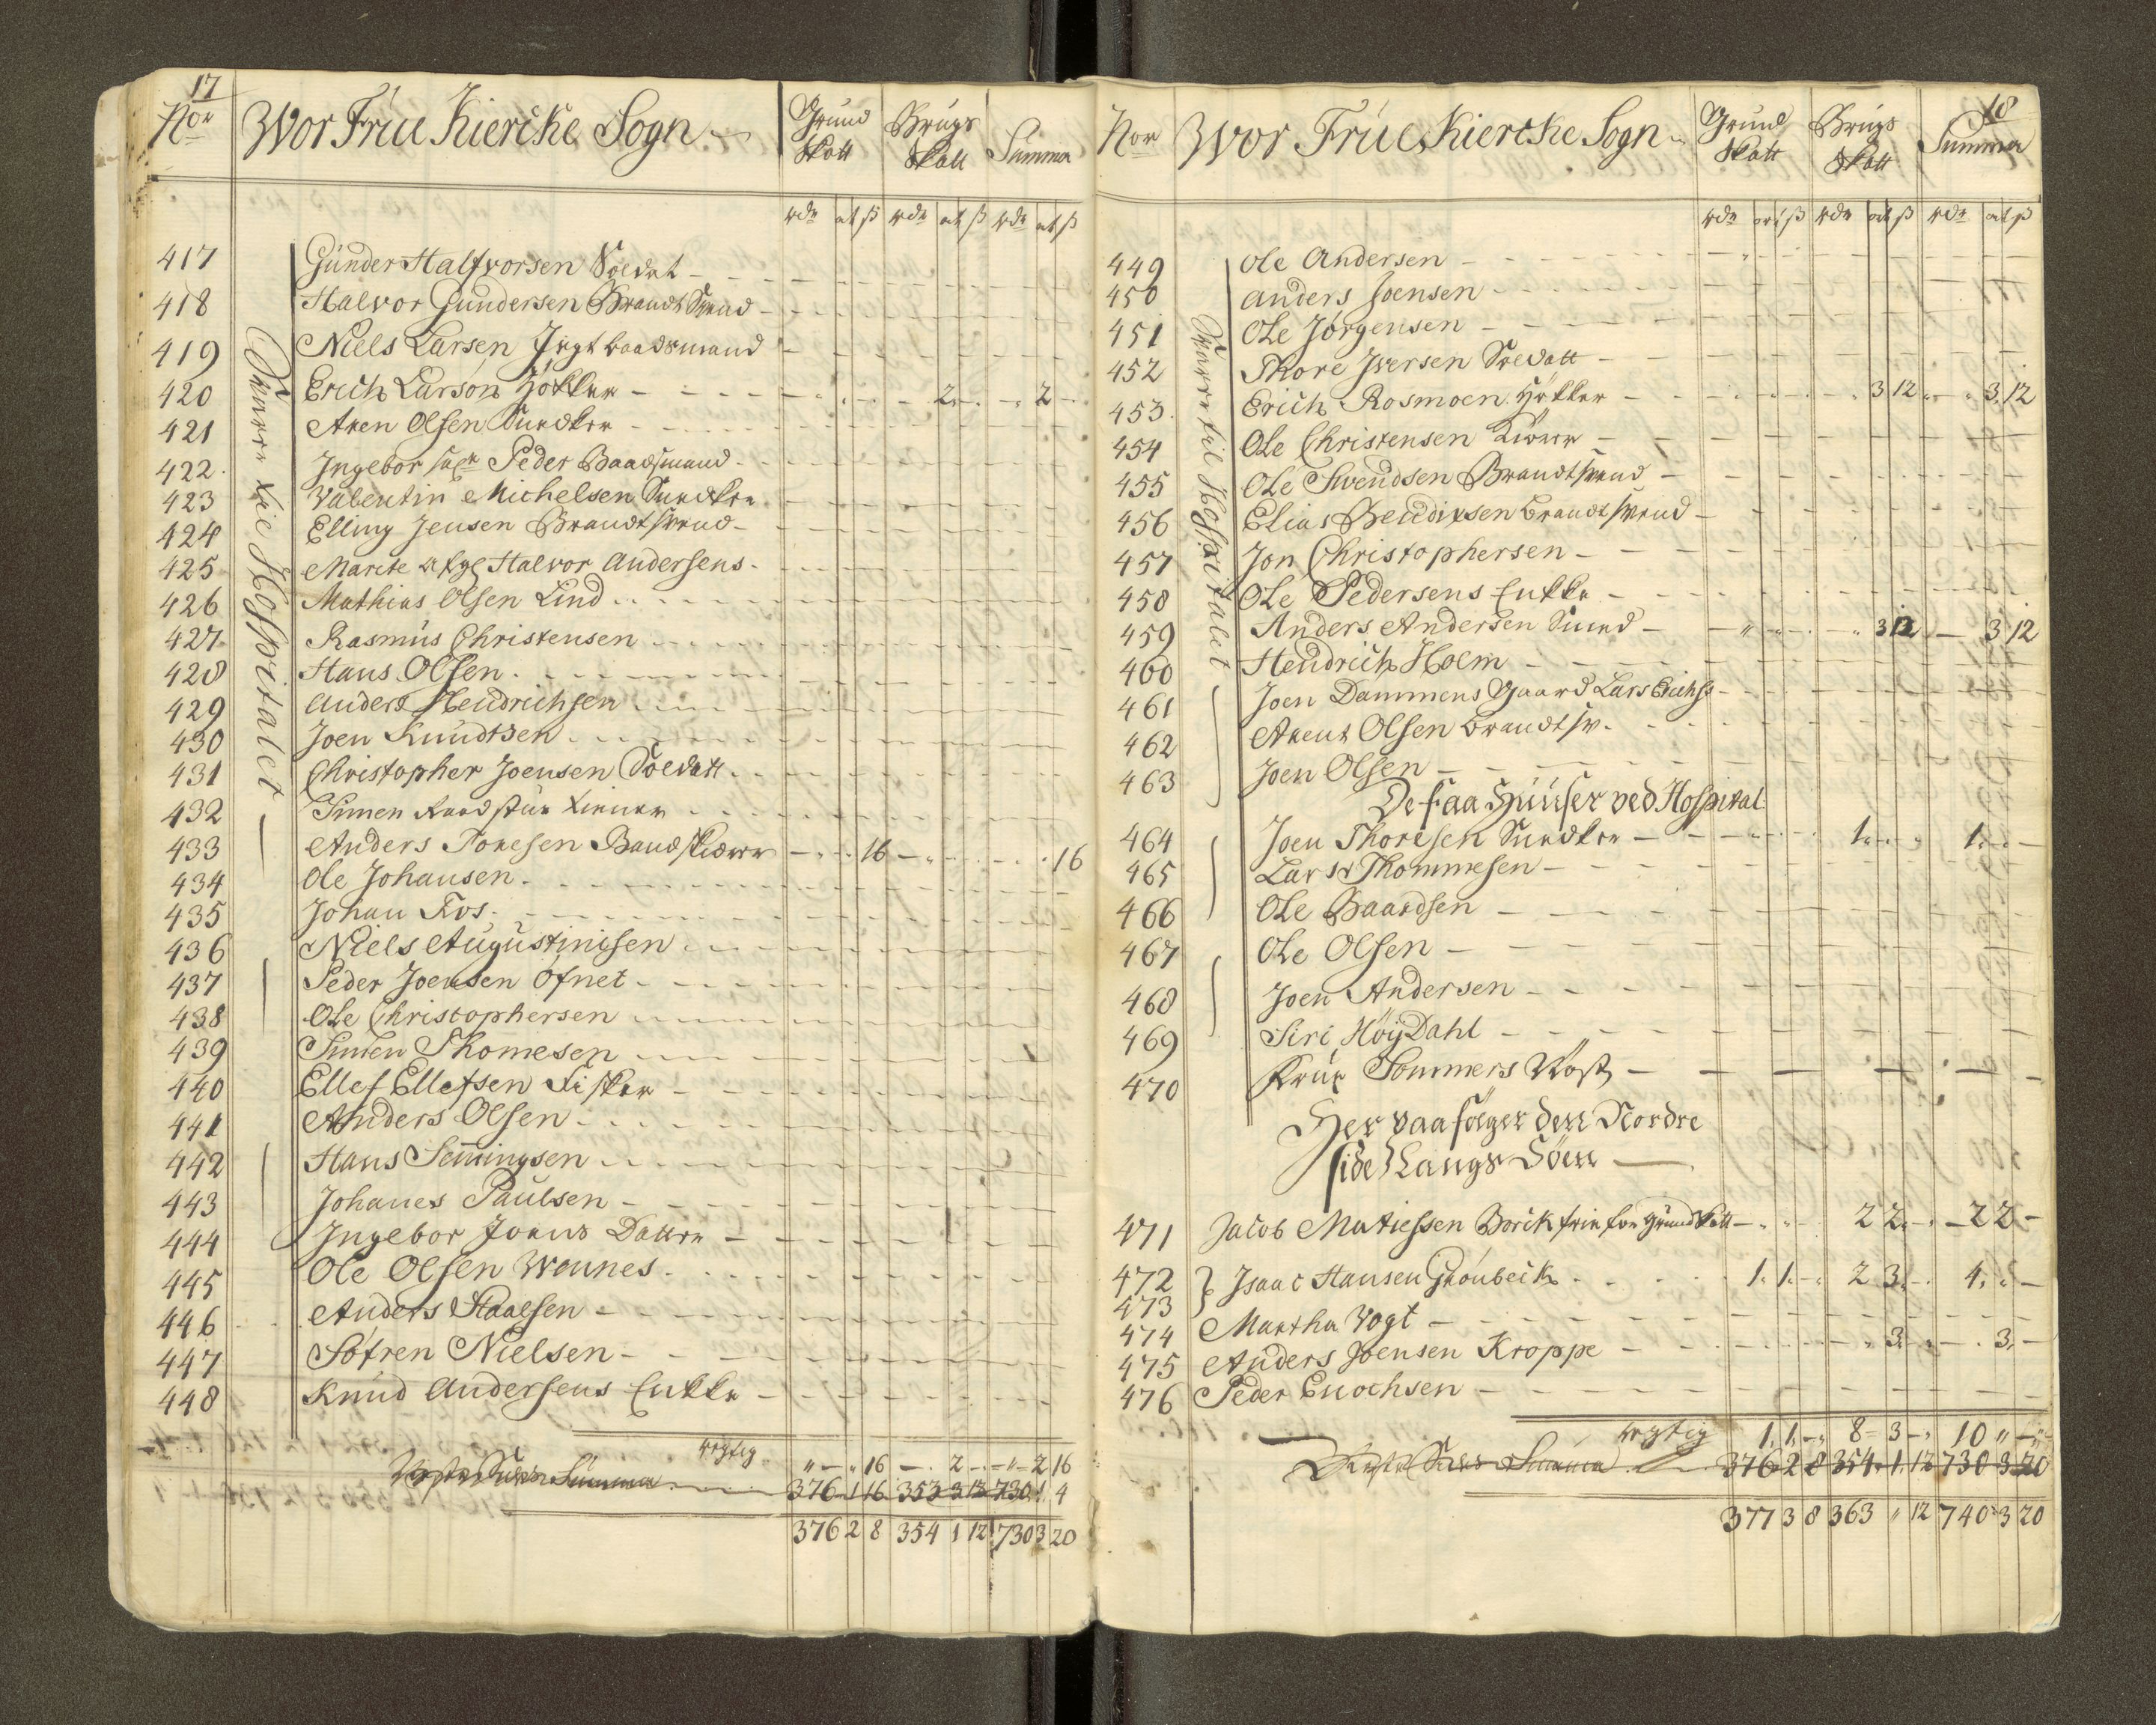 17
Nor Wor Frue Kiercke Sogn Grund Skatt Brugs Skatt Summa
rdr ort ß rdr ort ß rdr ort ß
Svarer til Hosspitalet
417 Gunder Halfvorsen Soldat
418 Halvor Gundersen Brandt Svend
419 Niels Larsen Jagt baadsmand
420 Erich Larsøn Hökker 2 2
421 Aren Olsen Snedker
422 Ingebor Peder Baadsmand
423 Valentin Michelsen Snedker
424 Elling Jensen Brandtsvend
425 Marite Halvor Andersens
426 Mathias Olsen Lind
427 Rasmus Christensen
428 Hans Olsen
429 Anders Hendrichsen
430 Joen Knudtsen
431 Christopher Joensen Soldatt
432 Simen
433 Anders Toresen Baadskierer 16 16
434 Ole Johansen
435 Johan Fos
436 Niels Augustinisen
437 Peder Joensen Ofnet
438 Ole Christophersen
439 Simen Thomesen
440 Ellef Ellefsen Fisker
441 Anders Olsen
442 Hans Semingsen
443 Johanes Paulsen
444 Ingebor Joens Datter
445 Ole Olsen Wennes
446 Anders Staalsen
447 Søfren Nielsen
448 Knud Andersens Enkke
rigtig 16 2 2 16
Summa 376 1 16 353 3 12 730 1 4
376 2 8 354 1 12 730 3 20
18
Nor Wor Frue Kiercke Sogn Grund Skatt Brugs Skatt Summa
rdr ort ß rdr ort ß rdr ort ß
Svarer til Hosspitalet
449 Ole Andersen
450 Anders Joensen
451 Ole Jørgensen
452 Thore Iversen Soldatt
453 Erich Rosmoen Hökker 3 12 3 12
454 Ole Christensen
455 Ole Svendsen Brandtsvend
456 Elias Bendixsen brandtsvend
457 Jon Christophersen
458 Ole Pedersens Enkke
459 Anders Andersen Smed 3 12 3 12
460 Hendrich Holm
461 Joen Dammens Gaard Lars Erichs
462 Arent Olsen brandtsv.
463 Joen Olsen
De faa Huuser ved Hospital
464 Joen Thoresen Snedker 1 1
465 Lars Thommesen
466 Ole Baardsen
467 Ole Olsen
468 Joen Andersen
469 Siri HöyDahl
470 Frue Sommers
Her paa følger den Nordre
side Langs Söen
471 Jacob Matiessen Borck frie for Grund Skatt 2 2 2 2
472 473 Isaac Hansen Grönbeck 1 1 2 3 4
474 Martha Vogt
475 Anders Joensen Kroppe 3 3
476 Peder Enochsen
rigtig 1 1 8 3 10
Summa 376 2 8 354 1 12 730 3 20
377 3 8 363 12 740 3 20